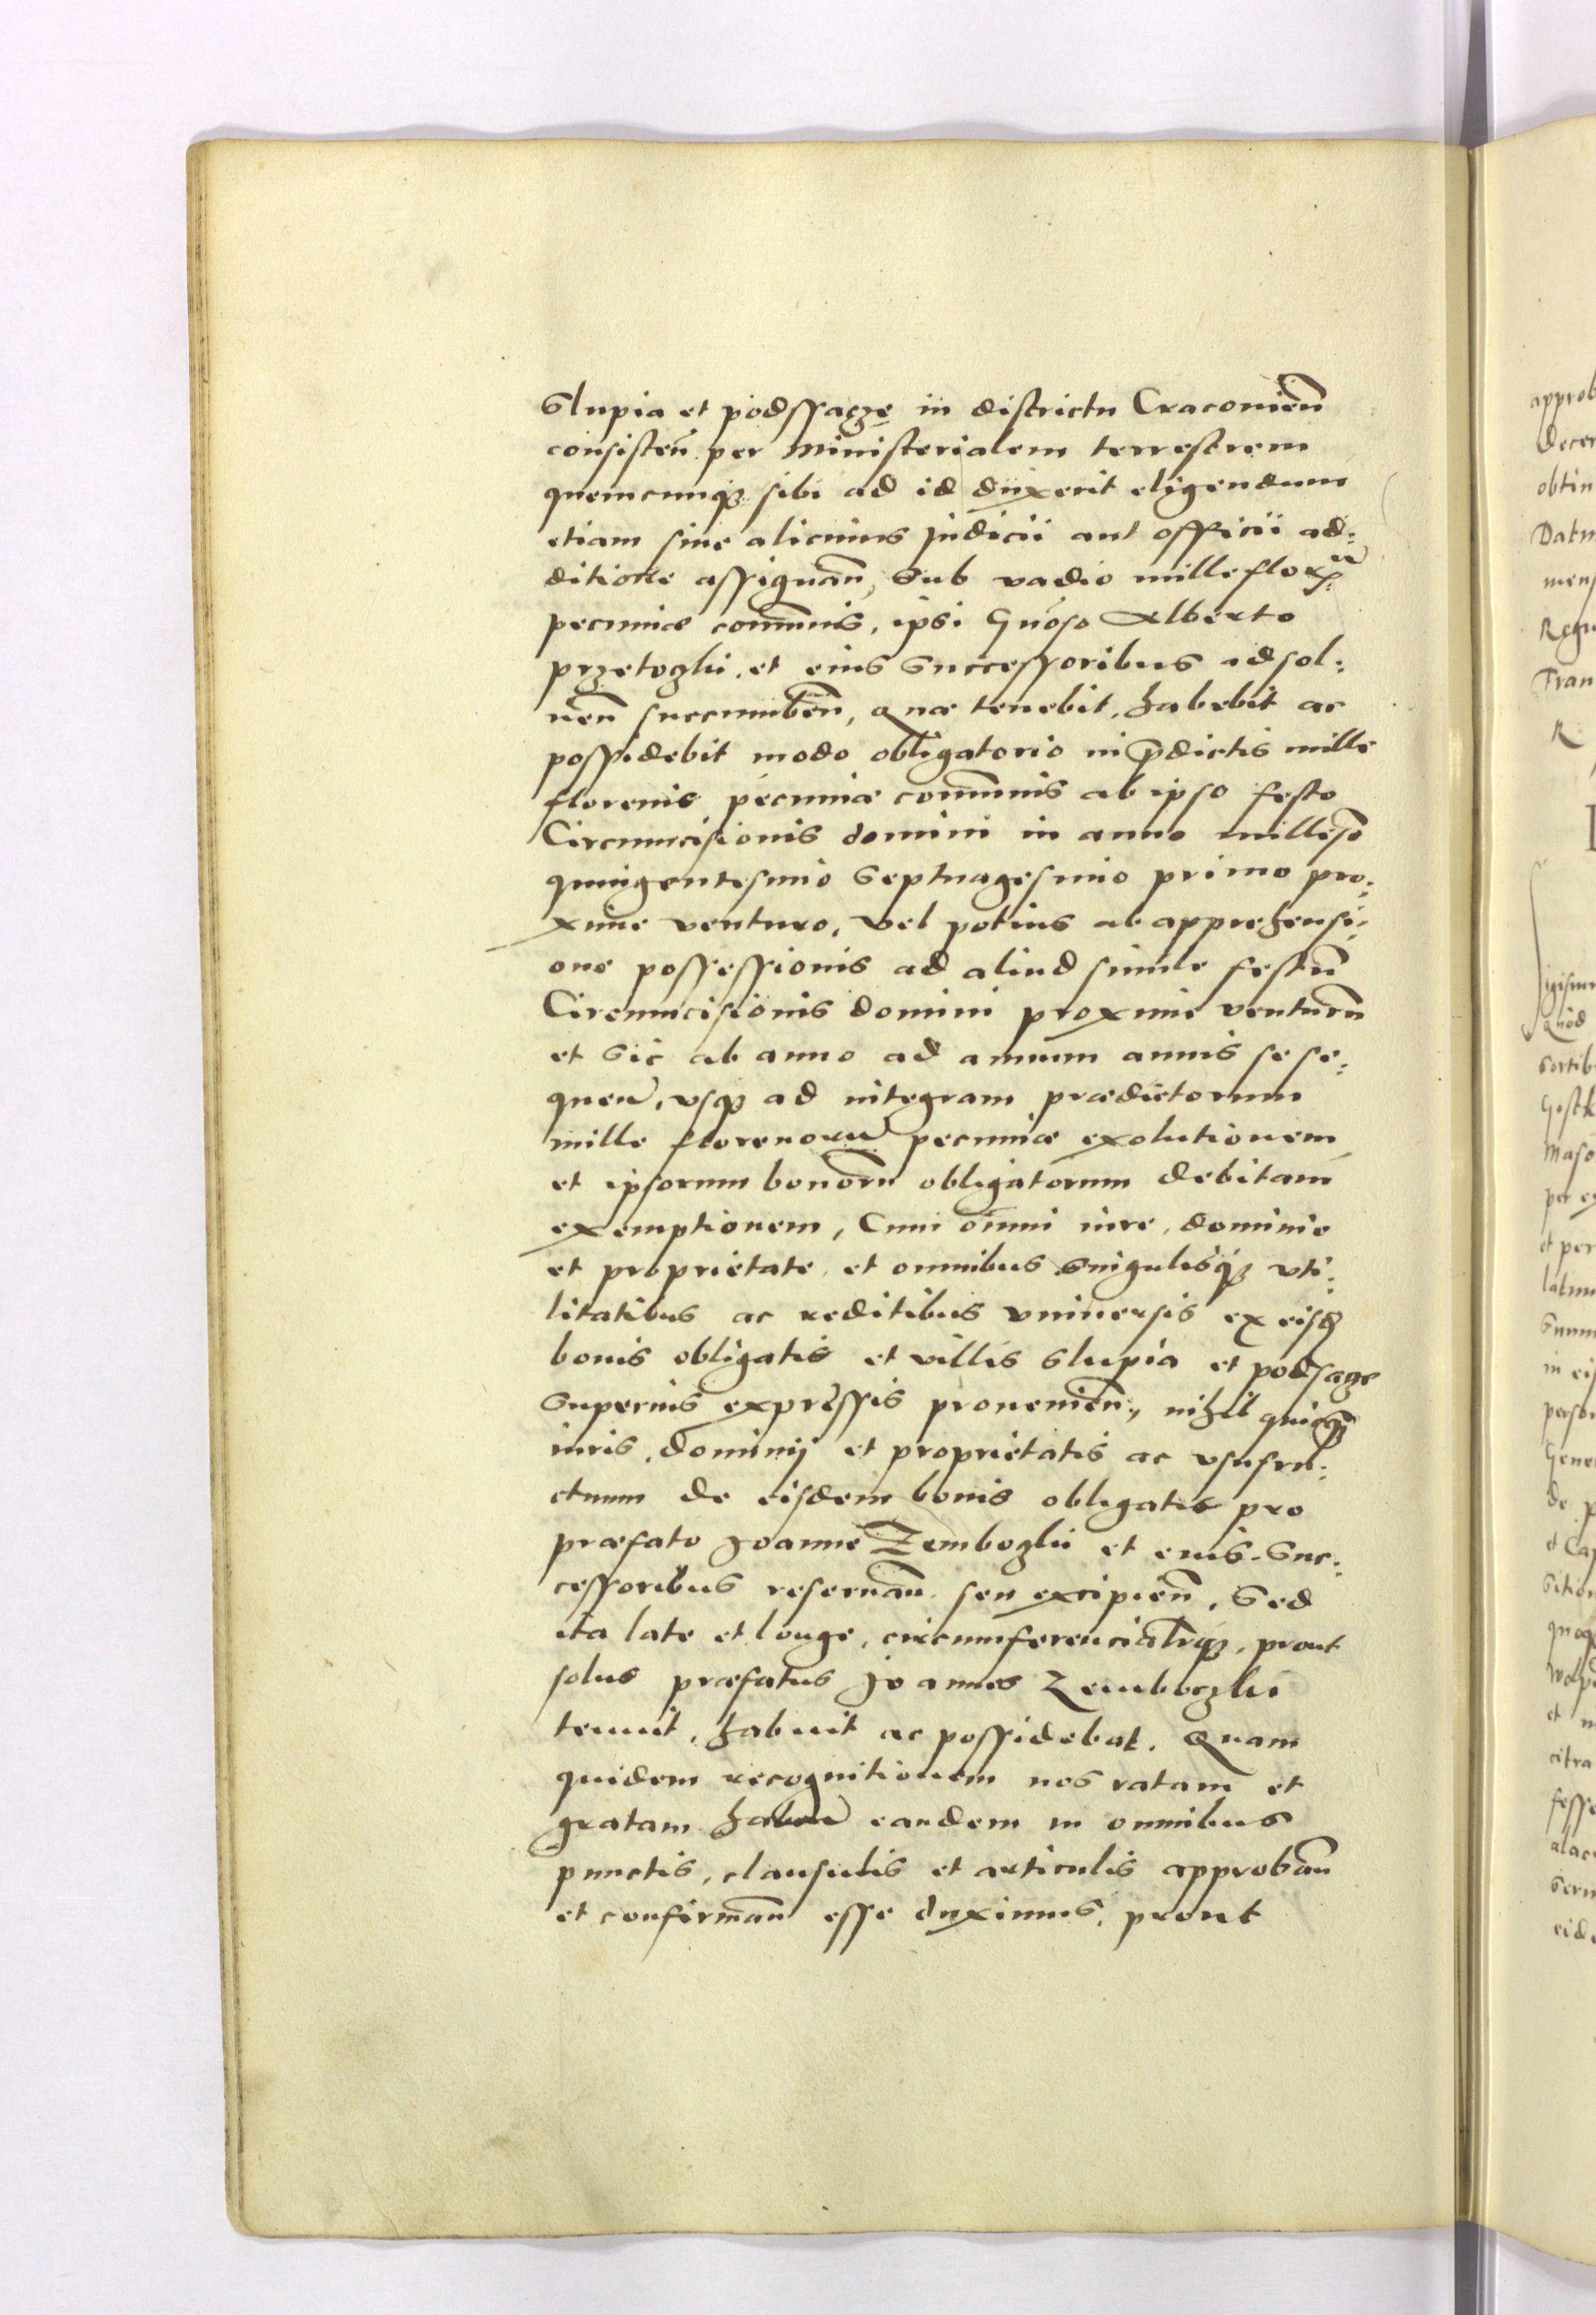 Slupia et podssącze in districtu Cracovień
consisteń per Ministerialem terrestrem
quemcunq₃ sibi ad id duxerit eligendum
etiam sine alicuius Judicii aut officii ad:
ditione assignań, sub vadio mille florẽ
pecuniæ communis, ipsi Gnoso Alberto
przetoczki, et eius successoribus adsol:
ueń succumbeń, Quæ tenebit, habebit ac
possidebit modo obligatorio in p̄dictis mille
florenis pecuniæ communis ab ipso festo
Circumcisionis domini in anno millesō
quingentesimo septuagesimo primo pro:
xime venturo, vel potius ab apprehensi:
one possessionis ad aliud simile festū
Circumcisionis domini proxime venturū
et sic ab anno ad annum annis se se:
queñ, vsq₃ ad integram prædictorum
mille florenorū pecuniæ exolutionem
et ipsorum bonorū obligatorum debitam
exemptionem, Cum omni iure, dominio
et proprietate, et omnibus singulisq₃ vti:
litatibus ac reditibus vniuersis ex eisd̄
bonis obligatis et villis slupia et podsącze
superius expressis prouenień, nihil quicq₃
iuris, dominij et proprietatis ac vsufru:
ctuum de eisdem bonis obligatis pro
præfato Joanne Zemboczki et eius suc:
cessoribus reseruań seu excipień, Sed
ita late et longe, circumferencialitq₃, prout
solus præfatus Joannes Zemboczki
tenuit, habuit ac possidebat. Quam
quidem recognitionem nos ratam et
gratam habeñ eandem in omnibus
punctis, clausulis et articulis approbań
et confirmań esse duximus, prout